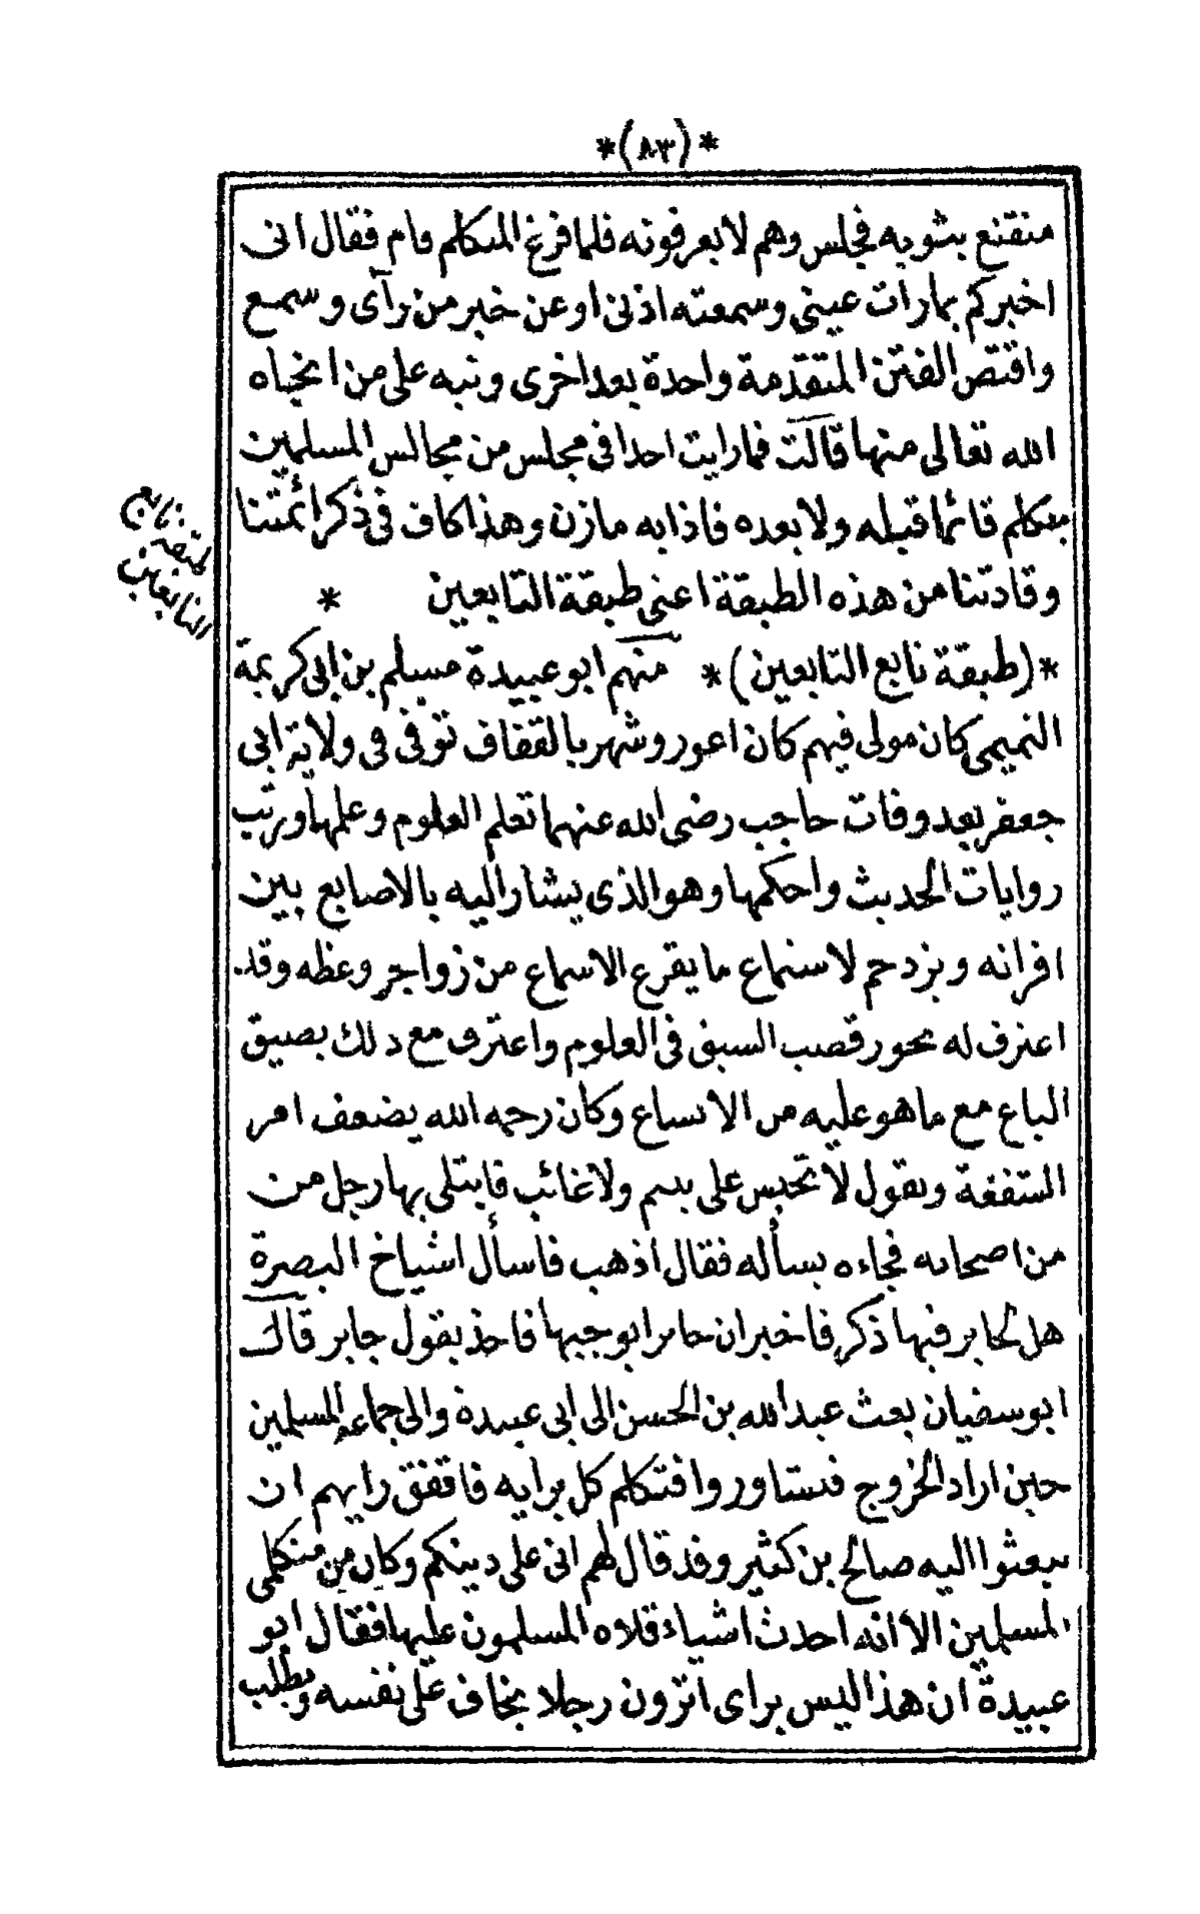 *(٨٣)*
متقنع بثوبه فجلس وهم لا يعرفونه فلما فرغ المتكلم قام فقال انى
اخبركم بما رات عينى وسمعته اذنى او عن خبر من رآى وسمع
واقتص الفتن المتقدمة واحدة بعد اخرى ونبه على من انجاه
الله تعالى منها قالت فما رايت احدا فى مجلس من مجالس المسلمين
يتكلم قائما قبله ولا بعده فاذا به مازن وهذا كاف فى ذكر ائمتنا
وقادتنا من هذه الطبقة اعنى طبقة التابعين *
*(طبقة تابع التابعين)* منهم ابو عبيدة مسلم بن ابى كريمة
التميمى كان مولى فيهم كان اعور وشهر بالقفاف توفى فى ولاية ابى
جعفر بعد وفات حاجب رضى الله عنهما تعلم العلوم وعلمها ورتب
روايات الحديث واحكمها وهو الذى يشار اليه بالاصابع بين
اقرانه ويزدحم لاستماع ما يقرع الاسماع من زواجر وعظه وقد
اعترف له بحوز قصب السبق فى العلوم واعترف مع ذلك بضيق
الباع مع ما هو عليه من الاتساع وكان رحمه الله يضعف امر
النفقة ويقول لا تحبس على يتيم ولا غائب فابتلى بها رجل من
من اصحابه فجاءه يسأله فقال اذهب فاسأل اشياخ البصرة
هل لجابر فيها ذكر فاخبر ان جابرا يوجبها فاخذ بقول جابر قال
ابو سفيان بعث عبد الله بن الحسن الى ابى عبيدة والى جماعة المسلمين
حين اراد الخروج فتشاوروا فتكلم كل برايه فاتفق رايهم ان
يبعثوا اليه صالح بن كثير وقد قال لهم انى على دينكم وكان من متكلمى
المسلمين الا انه احدث اشياء قلاه المسلمون عليها فقال ابو
عبيدة ان هذا ليس براى اترون رجلا يخاف على نفسه ويطلب
طبقة تابع
التابعين